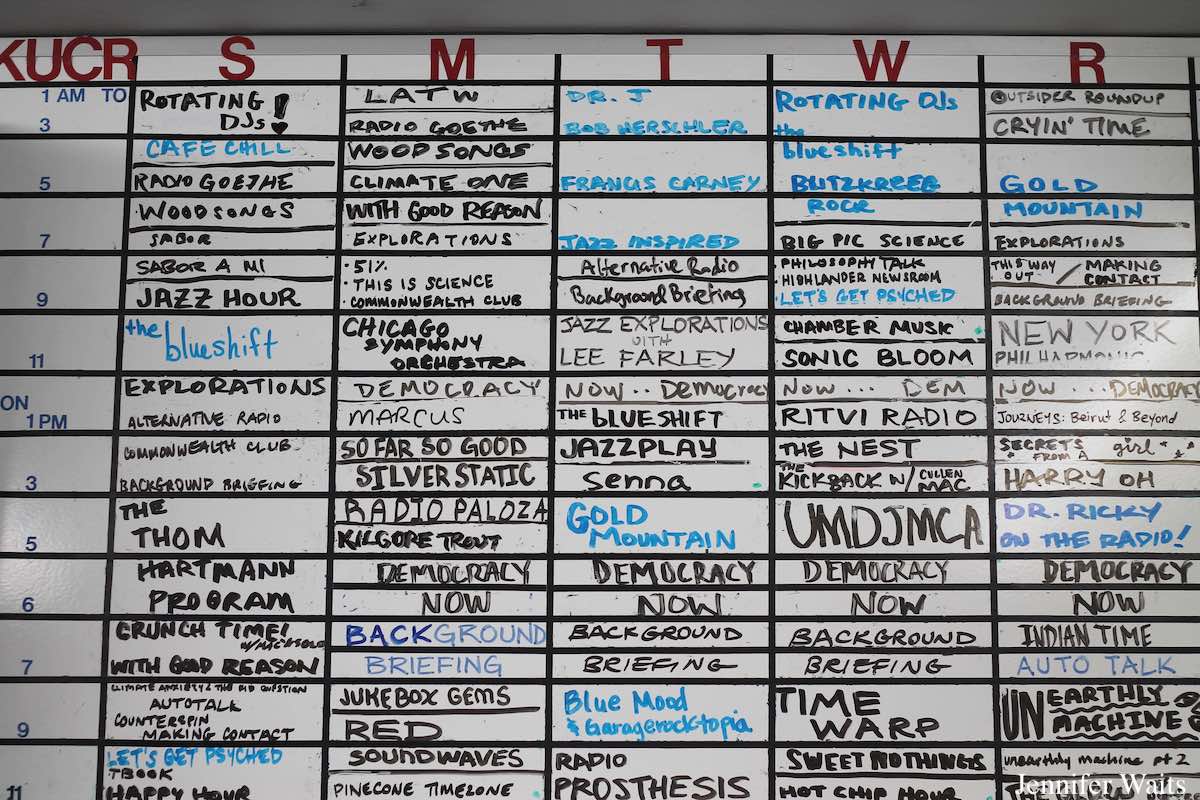 KUCR S M T W R
1 AM TO ROTATING LATW DR. J ROTATING DJs OUTSIDER ROUNDUP
3 DJs! RADIO GOETHE BOB HERSCHLER the CRYIN' TIME
CAFE CHILL WOODSONGS blueshift
5 RADIO GOETHE CLIMATE ONE FRANCIS CARNEY BLITZKREEG GOLD
WOODSONGS WITH GOOD REASON ROCK MOUNTAIN
7 SABOR EXPLORATIONS JAZZ INSPIRED BIG PIC SCIENCE EXPLORATIONS
SABOR A MI • 51% Alternative Radio • PHILOSOPHY TALK THIS WAY OUT / MAKING CONTACT
• THIS IS SCIENCE • HIGHLANDER NEWSROOM
9 JAZZ HOUR • COMMONWEALTH CLUB Background Briefing • LET'S GET PSYCHED BACKGROUND BRIEFING
the CHICAGO JAZZ EXPLORATIONS CHAMBER MUSIC NEW YORK
blueshift SYMPHONY WITH
11 ORCHESTRA LEE FARLEY SONIC BLOOM PHILHARMONIC
EXPLORATIONS DEMOCRACY NOW... Democracy NOW... DEM NOW ...DEMOCRACY
ON
1 PM ALTERNATIVE RADIO MARCUS THE BLUESHIFT RITVI RADIO JOURNEYS: Beirut & Beyond
COMMONWEALTH CLUB SO FAR SO GOOD JAZZPLAY THE NEST SECRETS FROM A girl
3 BACKGROUND BRIEFING SILVER STATIC Senna THE KICKBACK W/ CULLEN MAC HARRY OH
THE RADIO PALOZA GOLD UMDJMCA DR. RICKY
5 THOM KILGORE TROUT MOUNTAIN ON THE RADIO!
HARTMANN DEMOCRACY DEMOCRACY DEMOCRACY DEMOCRACY
6 PROGRAM NOW NOW NOW NOW
CRUNCH TIME! BACKGROUND BACKGROUND BACKGROUND INDIAN TIME
7 WITH GOOD REASON BRIEFING BRIEFING BRIEFING AUTO TALK
CLIMATE ANXIETY & THE KID QUESTION JUKEBOX GEMS Blue Mood TIME UNEARTHLY
AUTOTALK
COUNTERSPIN
9 MAKING CONTACT RED & Garagerocktopia WARP MACHINE
LET'S GET PSYCHED SOUNDWAVES RADIO SWEET NOTHINGS unearthly machine pt 2
TBOOK
11 HAPPY HOUR PINECONE TIMEZONE PROSTHESIS HOT CHIP HOUR
Jennifer Waits